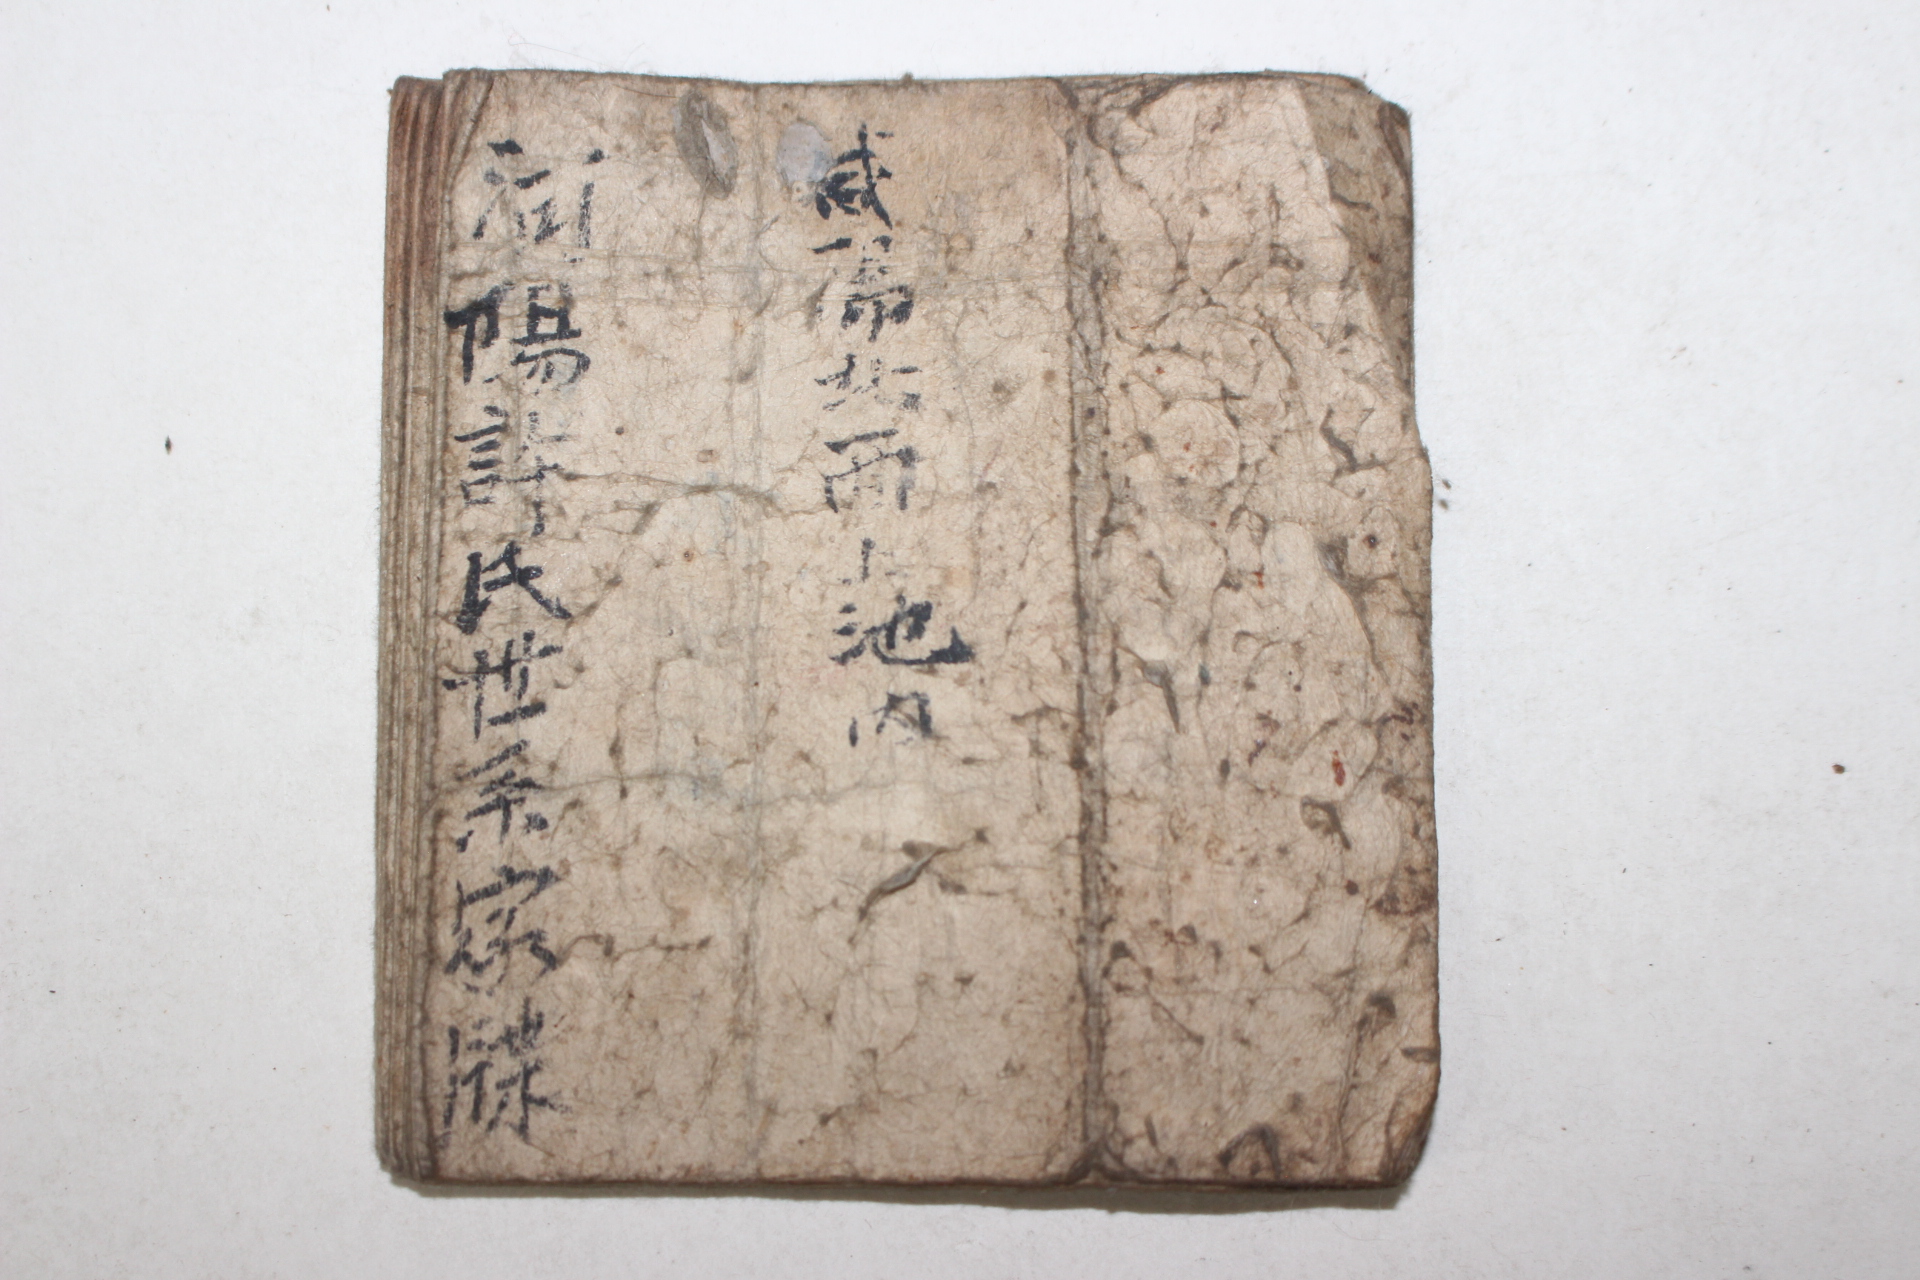 咸陽北面上池內
河陽許氏世系家牒